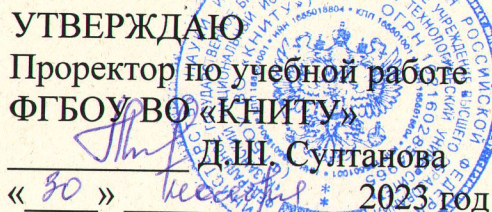 УТВЕРЖДАЮ
Проректор по учебной работе
ФГБОУ ВО «КНИТУ»
Д.Ш. Султанова
«30» 2023 год